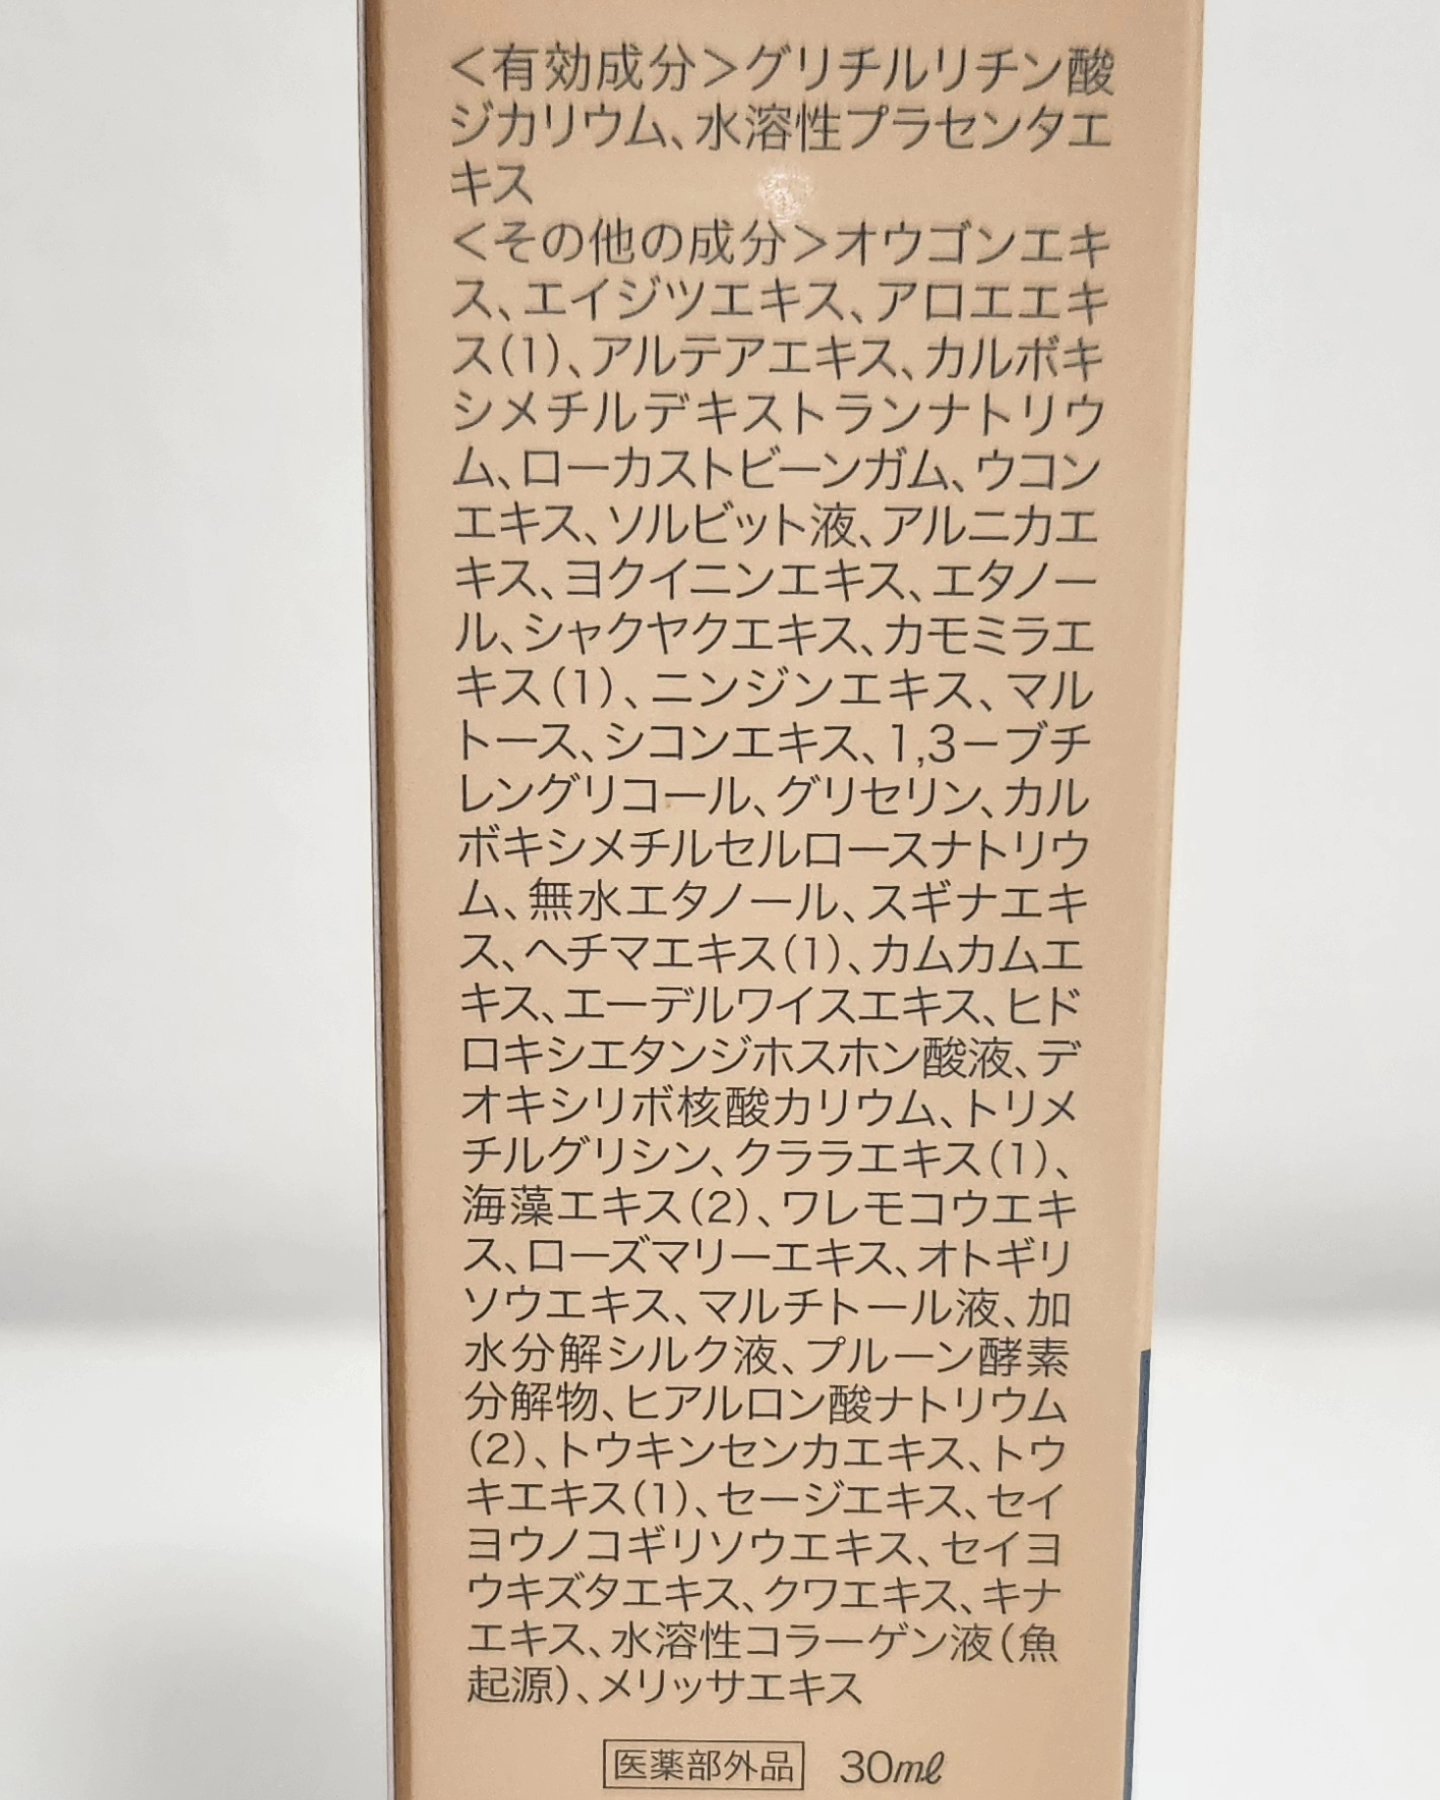 ＜有効成分＞グリチルリチン酸
ジカリウム、水溶性プラセンタエ
キス
＜その他の成分＞オウゴンエキ
ス、エイジツエキス、アロエエキ
ス(1)、アルテアエキス、カルボキ
シメチルデキストランナトリウ
ム、ローカストビーンガム、ウコン
エキス、ソルビット液、アルニカエ
キス、ヨクイニンエキス、エタノー
ル、シャクヤクエキス、カモミラエ
キス(1)、ニンジンエキス、マル
トース、シコンエキス、1,3－ブチ
レングリコール、グリセリン、カル
ボキシメチルセルロースナトリウ
ム、無水エタノール、スギナエキ
ス、ヘチマエキス(1)、カムカムエ
キス、エーデルワイスエキス、ヒド
ロキシエタンジホスホン酸液、デ
オキシリボ核酸カリウム、トリメ
チルグリシン、クララエキス(1)、
海藻エキス(2)、ワレモコウエキ
ス、ローズマリーエキス、オトギリ
ソウエキス、マルチトール液、加
水分解シルク液、プルーン酵素
分解物、ヒアルロン酸ナトリウム
(2)、トウキンセンカエキス、トウ
キエキス(1)、セージエキス、セイ
ヨウノコギリソウエキス、セイヨ
ウキズタエキス、クワエキス、キナ
エキス、水溶性コラーゲン液(魚
起源)、メリッサエキス
医薬部外品 30mℓ